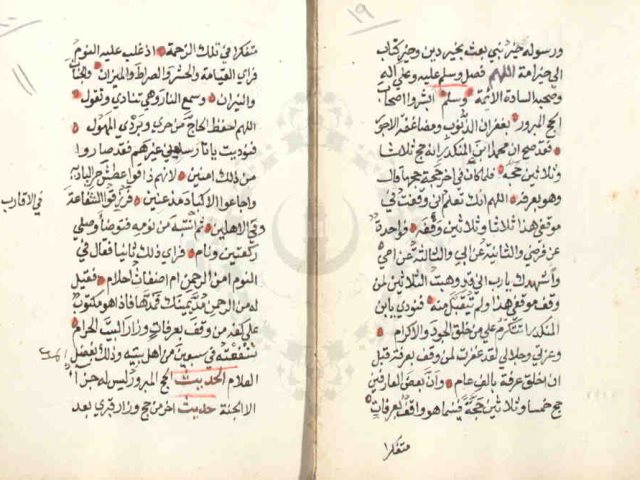 ١٩
ورسوله خير نبي بعث بخير دين وخير كتاب
الى خير امة اللهم فصل وسلم عليه وعلى اله
وصحبه السادة الائمة وسلم ابشروا اصحاب
الحج المبرور بغفران الذنوب ومضاعفة الاجور
فقد صح ان محمد ابن المنكدر انه حج ثلاثا
وثلاثين حجة فلما كان في اخر حجة حجها قال
وهو بعرفة اللهم انك تعلم اني وقفت في
موقفي هذا ثلاثا وثلاثين وقفة فواحدة
عن فرضي والثانية عن ابي والثالثة عن امي
واشهدك يارب اني قد وهبت الثلاثين لمن
وقف موقفي هذا ولم تتقبل منه فنودي يا بن
المنكدر اتتكرم على من خلق الجود والاكرام
وعزتي وجلالي لقد غفرت لمن وقف بعرفة قبل
ان اخلق عرفة بالف عام وان بعض العارفين
حج خمسا وثلاثين حجة فبينما هو واقف بعرفات
متفكرا
متفكرا في تلك الرحمة اذ غلب عليه النوم
فراى القيامة والحشر والصراط والميزان والجنان
والنيران وسمع النار وهي تنادي وتقول
اللهم احفظ الحاج من حري وبردي المهول
فنوديت يا نار سلي غيرهم فقد صاروا
من ذلك امنين لانهم ذاقوا عطش حر البادية
واجاعوا الاكباد مذعنين فرزقوا الشفاعة
في الاقارب
وفي الاهلين ثم انتبه من نومه فتوضأ وصلى
ركعتين ونام فراى ذلك ثانيا فقال في
النوم امن الرحمن ام اضغاث احلام فقيل
له من الرحمن مد يمينك فمدها فاذا هو مكتوب
على كفه من وقف بعرفات وزار البيت الحرام
شفعته في سبعين من اهل بيته وذلك بفضل
العلام الحديث الحج المبرور ليس له جزاء
الا الجنة حديث اخر من حج وزار قبري بعد